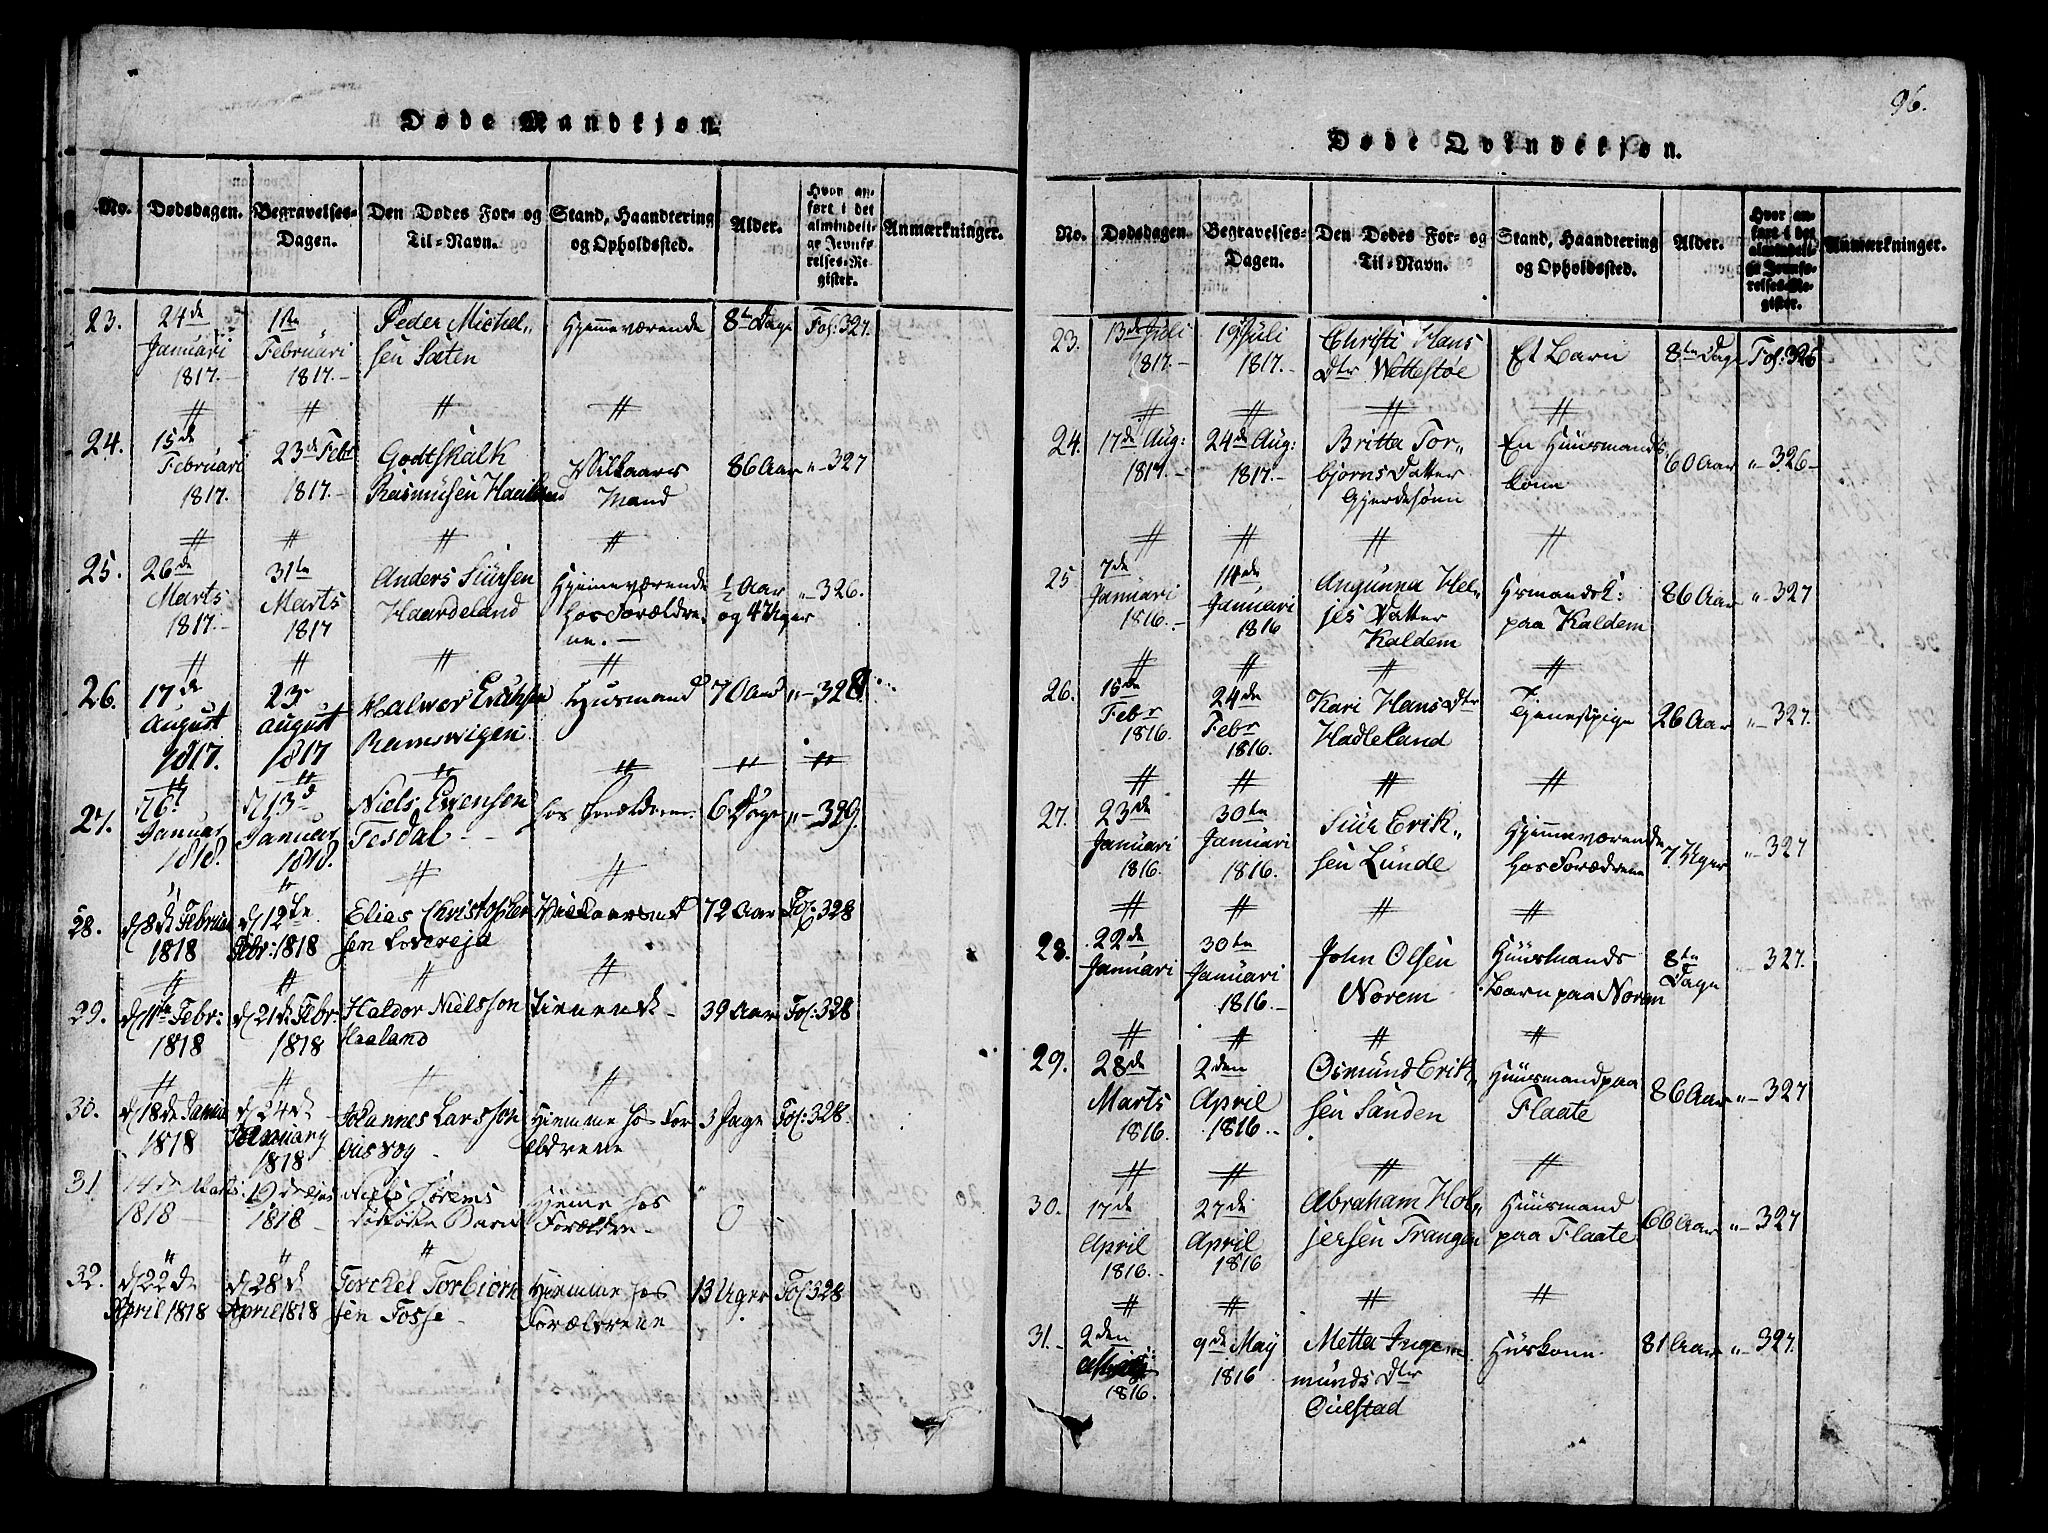 96.
Døde Mandkjøn.
No. Dødsdagen. Begravelses-Dagen. Den Dødes For- og Til-Navn. Stand, Haandtering og Opholdssted. Alder. Hvor anført i det almindelige Jevnførelses-Register. Anmærkninger.
23. 24de 1ste Peder Michel„ Hjemmeværende 8te Dage Fol: 327.
Januari Februari sen Sæten
1817.- 1817.-
24. 15de 23de Febr Godtskalk Vilkaars 86 Aar „-327
Februari 1817.- Rasmusen Mand
1817.
25. 26de 31te Anders Siursen Hjemmeværende ½ Aar „-326.
Marts Marts Haardeland hos Forældre- og 4 Uger
1817.- 1817 ne.-
26. 17de 23. Halvor Huusmand 70 Aar „-328
August August Ramsvigen
1817. 1817
27. 13d Niels Evensen hos Forældrene 6 Dage „-329.
Januar Januar Tosdal -
1818. 1818.
28. d. 8de Februar d. 12te Elias Christophersen 72 Aar Fol: 328
1818 Febr: 1818 sen
29. d. 11te Febr: d. 21de Febr: Haldor Nielsson Tienende 39 Aar Fol: 328
1818 1818 Haaland
30. d. 18de Janua d. 24de Johannes Larsson Hiemme hos For 3 Dage Fol: 328.
1818 1818 ældrene
31 14de Marts Niels Hjeme hos 0
1818 1818 dødfødte Barn Forældre-
32. d. 22de d. 28de Torckel Torbiørn Hiemme hos 13 Uger Fol: 328
April 1818 April 1818 sen Fosse - Forældrene
Døde Qvindekjøn.
No. Dødsdagen. Begravelses-Dagen. Den Dødes For- og Til-Navn. Stand, Haandtering og Opholdssted. Alder. Hvor anført i det almindelige Jevnførelses-Register. Anmærkninger.
23. 13de Juli 19de Juli Christi Hans Et Barn 8te Dage Fol: 326
1817.- 1817.- Dtr Wettestøe
24. 17de Aug: 24de Aug: Britta Tor„ En Huusmands 60 Aar „-326-
1817.- 1817.- bjørns Datter kone
Gjerdesøen
25 7de 14de Angunna Hel„ Hsmandsk: 86 Aar „-327
Januari Januari jes Datter paa Kaldem
1816.- 1816 Kaldem
26. 15de 24de Kari Hans Dtr Tjenestpige 26 Aar „-327.
Febr Febr Hadleland
1816. 1816.
27. 23de 30te Siur Erik„ Hjemmeværende 7 Uger „-327
Januari Januari sen Lunde hos Forældrene
1816. 1816.
28. 22de 30te John Olsen Huusmands 8te „-327.
Januari Januari Norem Barn paa Norem Dage
1816.-
29. 28de 2den Osmund Erik„ Huusmand paa 86 Aar „-327
Marts April sen Sanden Flaate
1816. 1816.-
30. 17de 27de Abraham Hol„ Huusmand 66 Aar „-327
April April jersen Trangen paa Flaate
1816.- 1816
31.- 2den 9de May Metta Ingem Huskone. 81 Aar „-327.
1816. 1816 munds Dtr